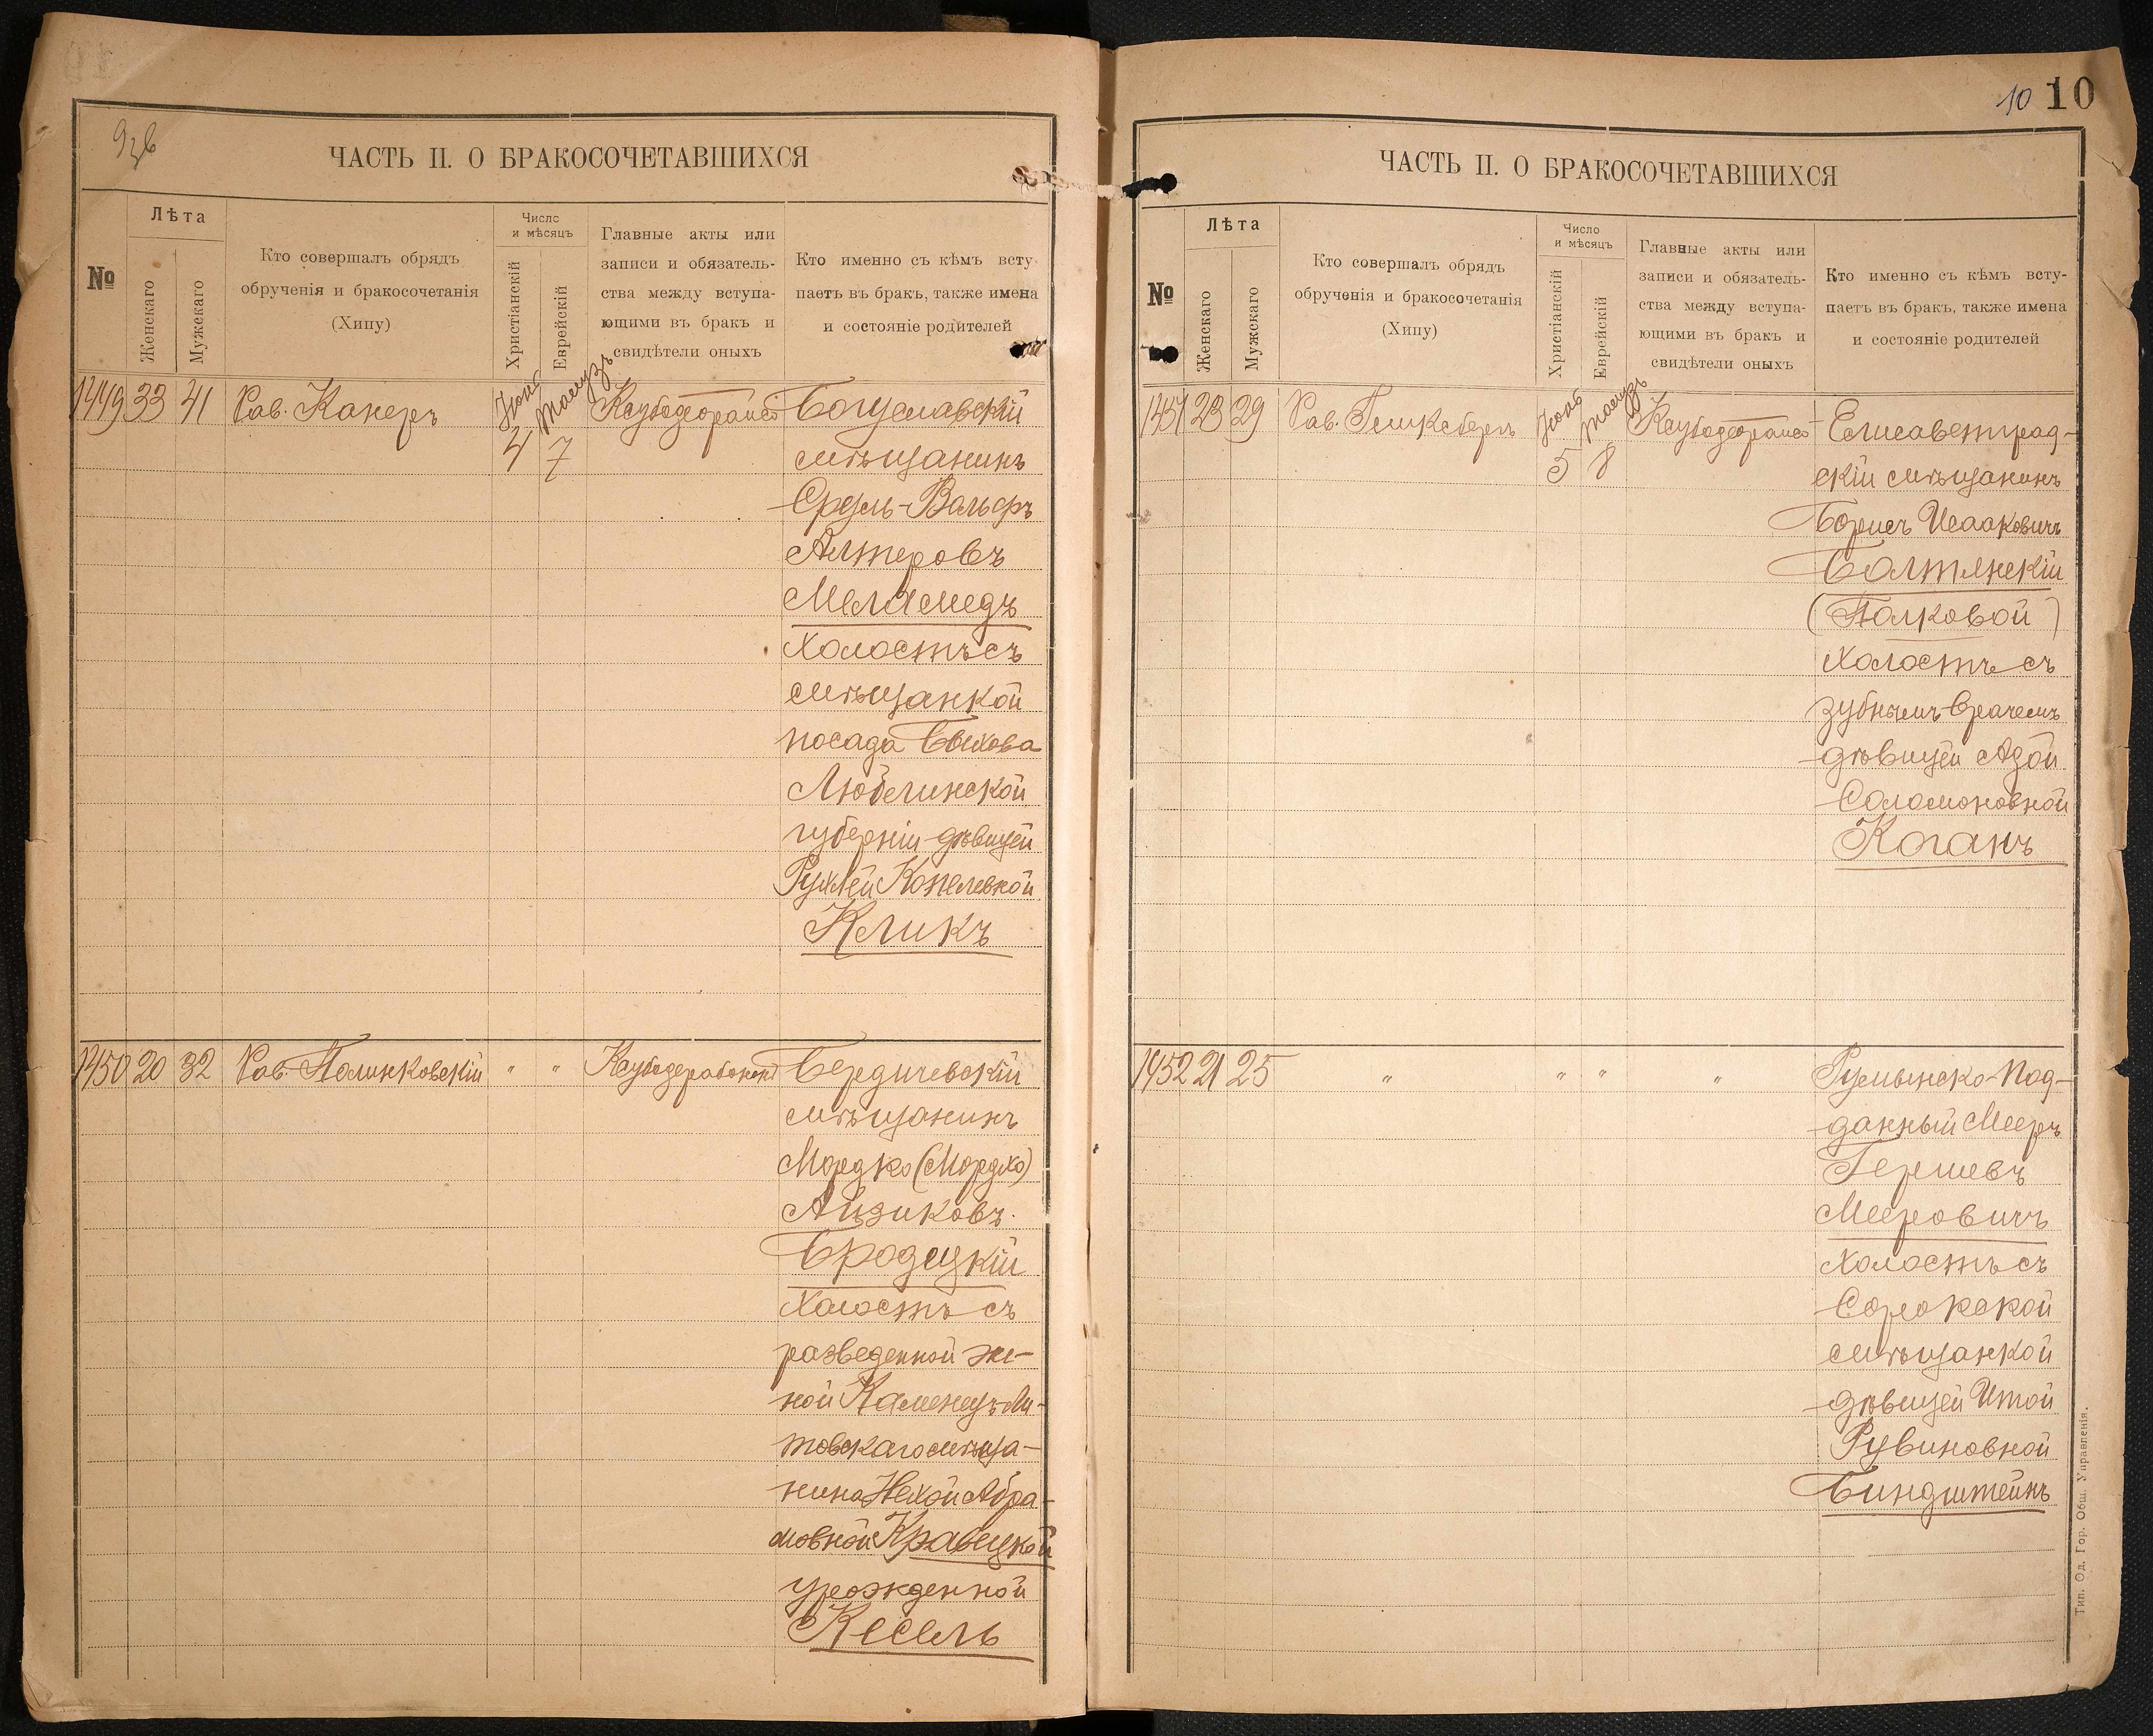 9 об
ЧАСТЬ II. О БРАКОСОЧЕТАВШИХСЯ
№
Лѣта
Женскаго
Мужскаго
Кто совершалъ обрядъ
обрученія и бракосочетанія
(Хипу)
Число
и мѣсяцъ
Христіанскій
Еврейскій
Главные акты или
записи и обязатель-
ства между вступа-
ющими въ бракъ и
свидѣтели оныхъ
Кто именно съ кѣмъ всту-
паетъ въ бракъ, также имена
и состояніе родителей
1449 33 41 Рав. Канеръ 4 7 Богуславскій
мѣщанинъ
Срузль-Вольфъ
Алтеровъ
Меламедъ
холостъ съ
мѣщанкой
посада Быхова
Люблинской
губерніи дѣвицей
Рухлей Копелевной
Кликъ
1450 20 32 Рав. Полинковскій " " Бердичевскій
мѣщанинъ
Мордко (Мордхо)
Айзиковъ
Бродецкій
холостъ съ
разведенной же-
ной Каменецъ-Ли-
товскаго мѣща-
нина Нехой Абра-
мовной Кравецкой
урожденной
Кесель
10 10
ЧАСТЬ II. О БРАКОСОЧЕТАВШИХСЯ
№
Лѣта
Женскаго
Мужскаго
Кто совершалъ обрядъ
обрученія и бракосочетанія
(Хипу)
Число
и мѣсяцъ
Христіанскій
Еврейскій
Главные акты или
записи и обязатель-
ства между вступа-
ющими въ бракъ и
свидѣтели оныхъ
Кто именно съ кѣмъ всту-
паетъ въ бракъ, также имена
и состояніе родителей
1451 23 29 Рав. Гинксбергъ 5 8 Елисаветград-
скій мѣщанинъ
Борисъ Исааковичъ
Балтянскій
(Полковой)
холостъ съ
зубнымъ врачемъ
дѣвицей Адой
Соломоновной
Коганъ
1452 21 25 " " " " Румынско-под-
данный Мееръ
Гершевъ
Мееровичъ
холостъ съ
Сорокской
мѣщанкой
дѣвицей Итой
Рувиновной
Биндштейнъ
Тип. Од. Гор. Общ. Управленія.